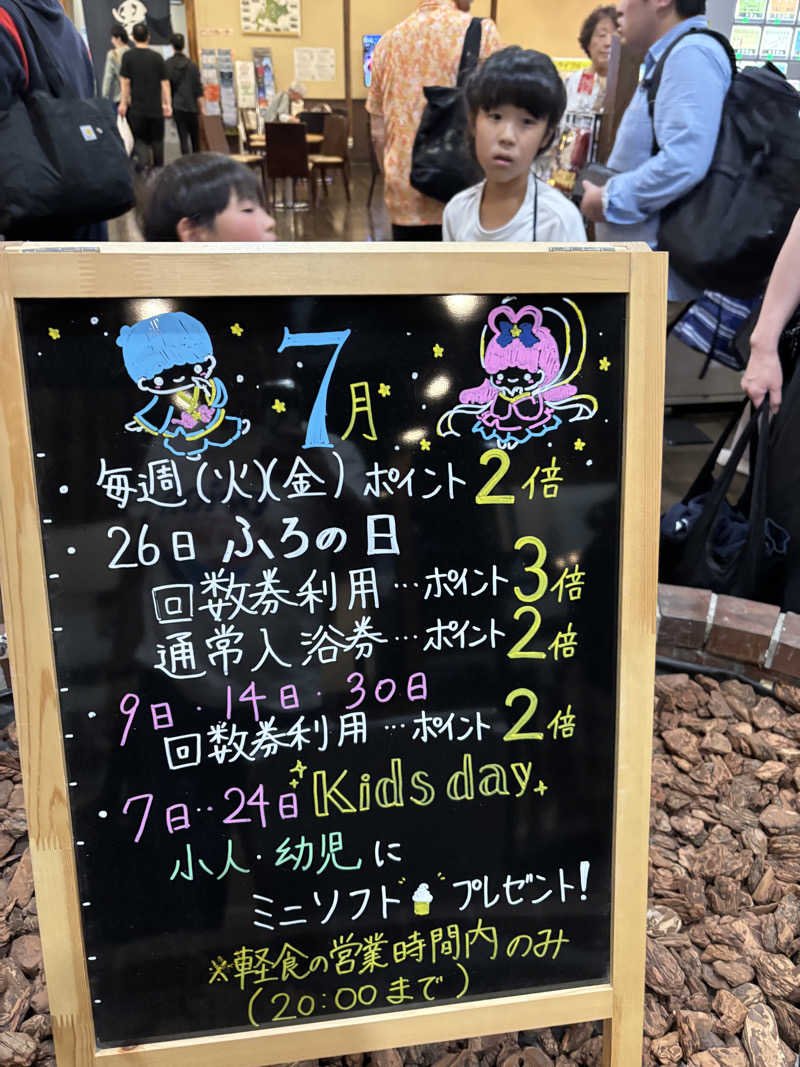 7月
毎週(火)(金)ポイント2倍
26日 ふろの日
回数券利用…ポイント3倍
通常入浴券…ポイント2倍
9日・14日・30日
回数券利用…ポイント2倍
7日・・24日 Kids day
小人・幼児に
ミニソフト プレゼント!
※軽食の営業時間内のみ
(20:00まで)